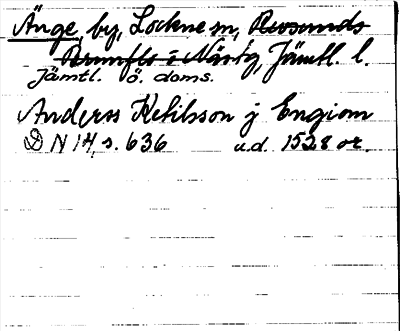 Änge, by, Lockne sn, Revsunds
Brunflo i Närby, Jämtl. l.
Jämtl. ö. doms.
Anders Ketilsson j Engiom
D N 14, s. 636 u.d. 1528 or.